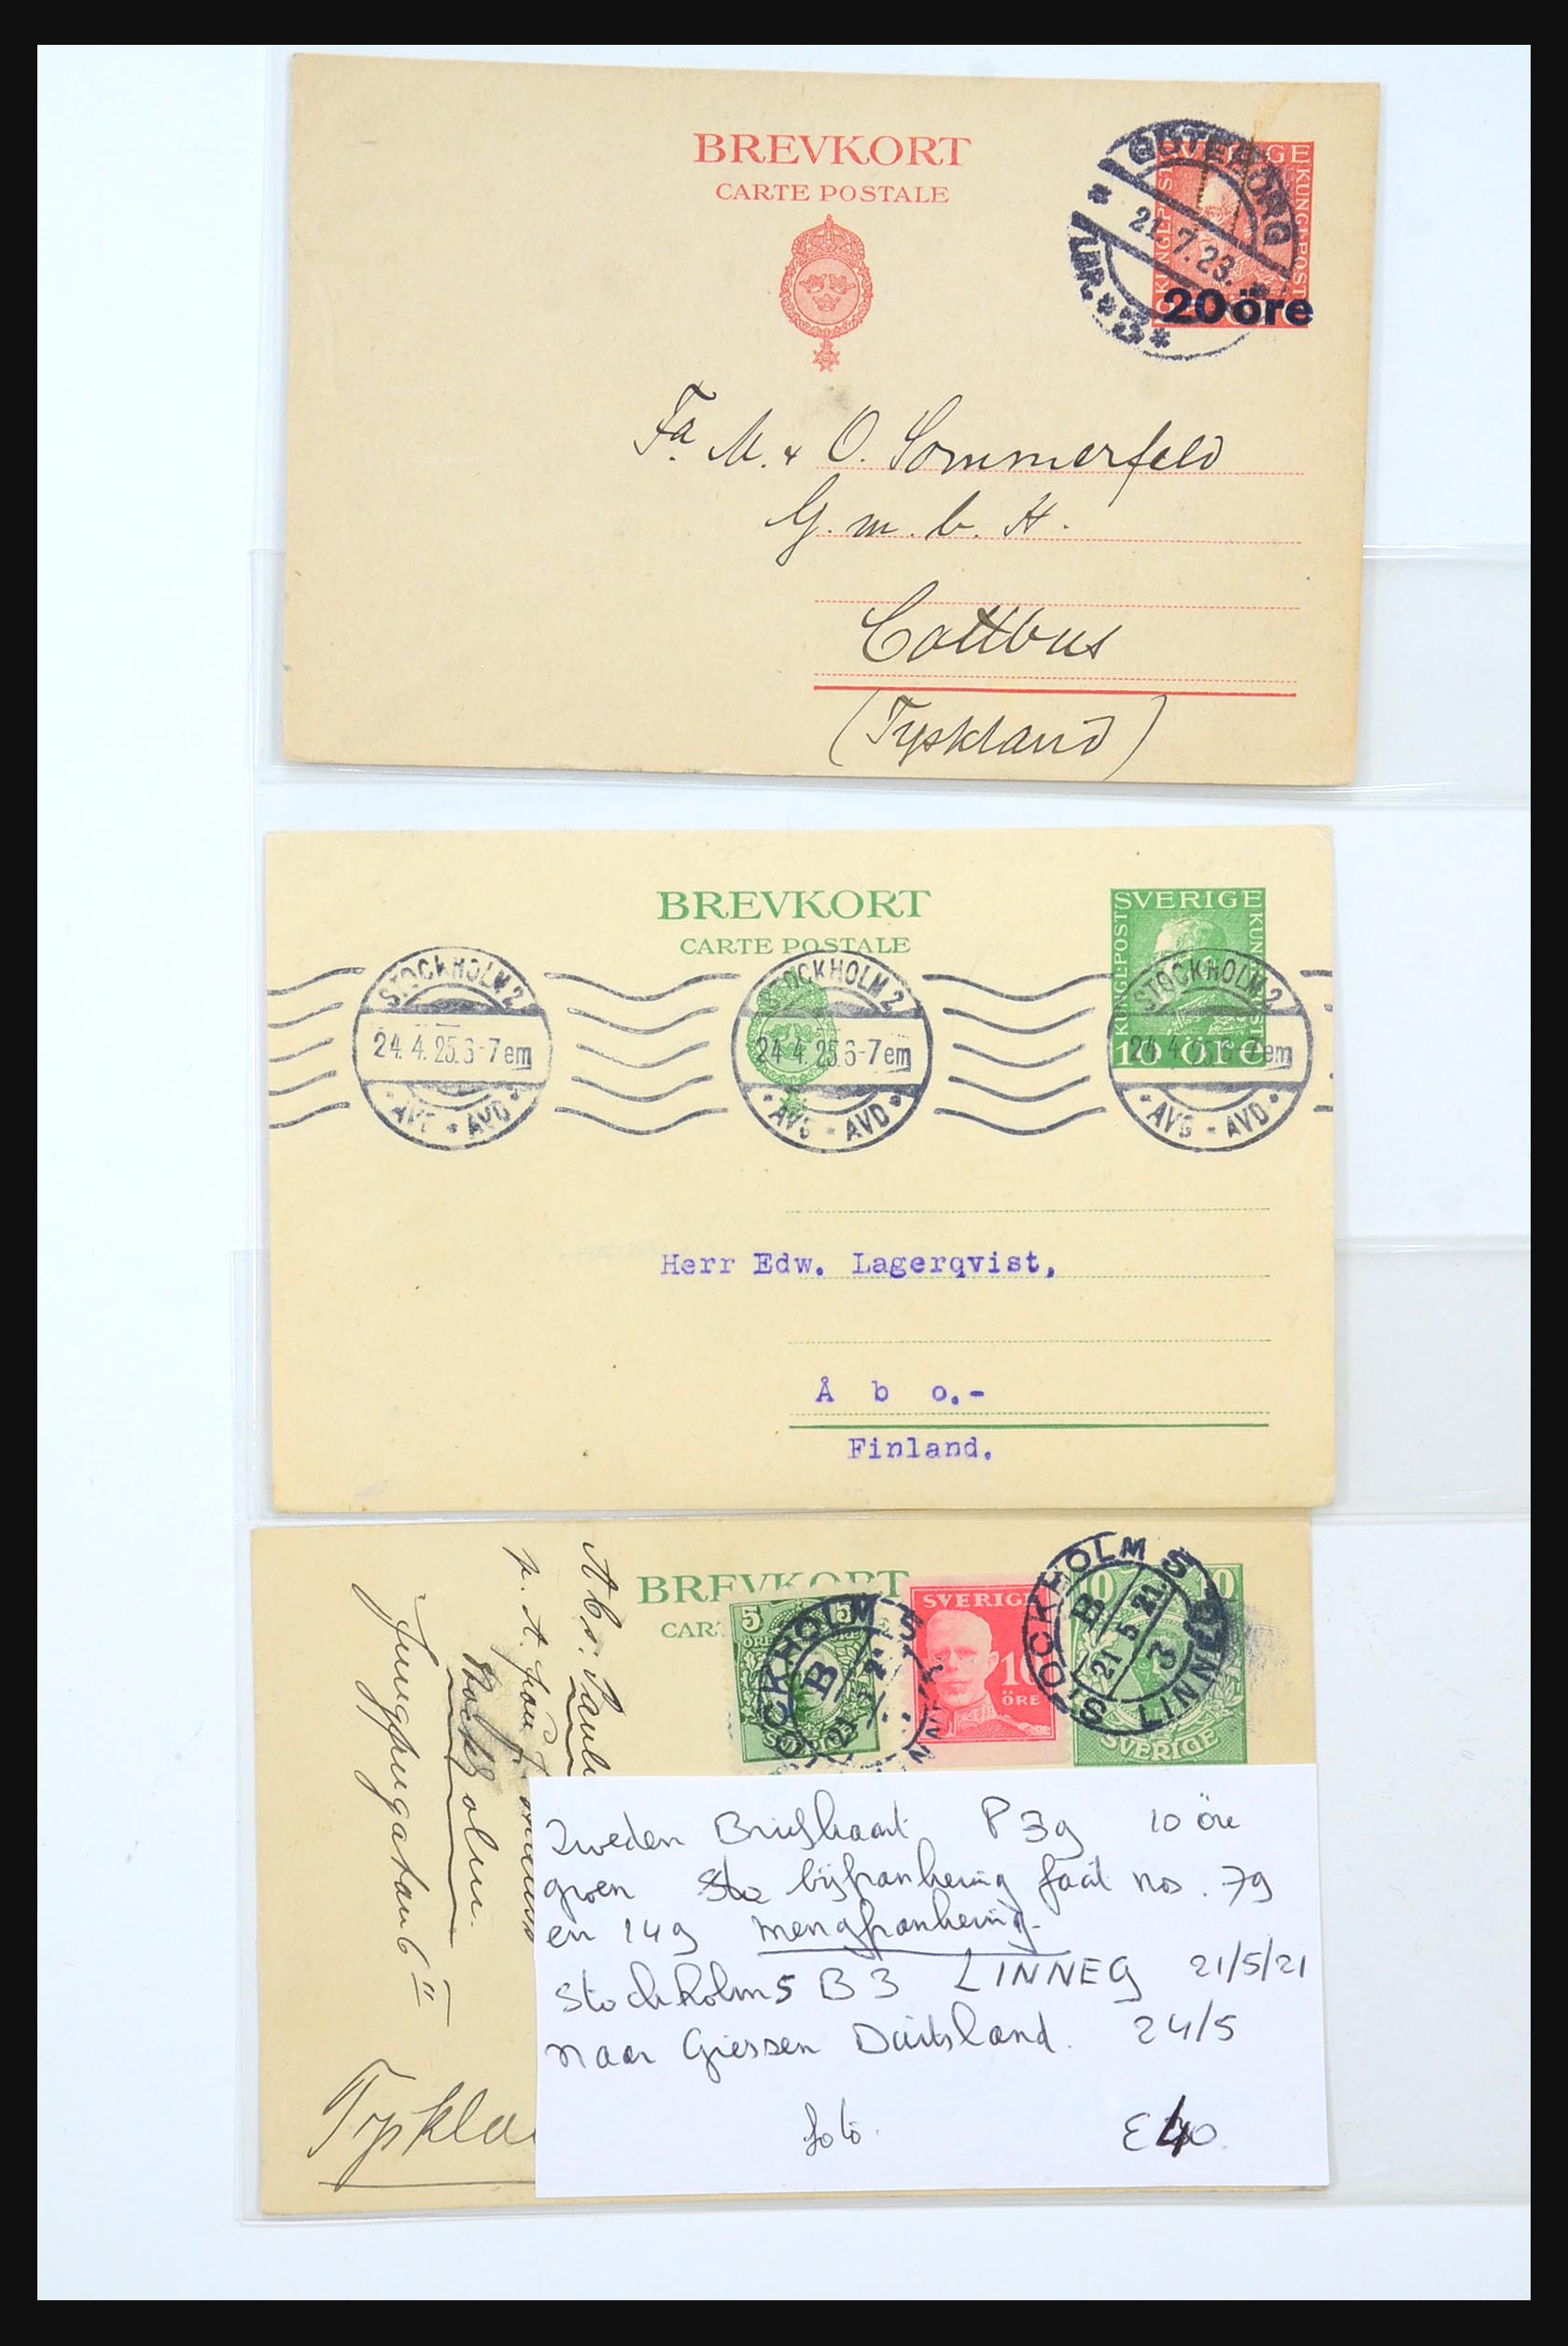 BREVKORT
CARTE POSTALE
SVERIGE
KUNGL·POST
GÖTEBORG
21.7.23.
LBR. 3
20 öre
Fa. M. & O. Sommerfeld
G. m. b. H.
Cottbus
(Tyskland)
BREVKORT
CARTE POSTALE
SVERIGE
KUNGL·POST
10 ÖRE
STOCKHOLM 2
24.4.25.6-7em
AVG - AVD
STOCKHOLM 2
24.4.25.6-7em
AVG - AVD
STOCKHOLM 2
24.4.25.6-7em
AVG - AVD
Herr Edw. Lagerqvist,
Å b o.-
Finland.
BREVKORT
CAR
5 5
ÖRE
SVERIGE
SVERIGE
10
ÖRE
10 10
SVERIGE
STOCKHOLM 5
B
21
STOCKHOLM 5
B 21
21 5 3
LINNEG
Abs.
p. A. Frau
Stockholm.
Jungfrugatan 6 II
Tyskla
Zweden Briefkaart P 39 10 öre
groen bijfrankering facit nos. 79
en 149 mengfrankering.
Stockholm 5 B 3 LINNEG 21/5/21
naar Giessen Duitsland. 24/5
foto. €40.